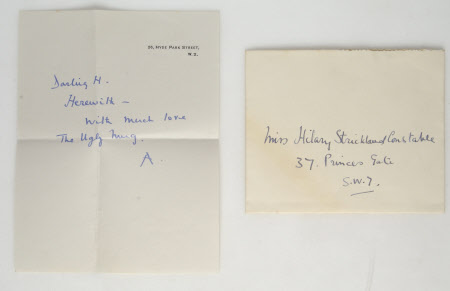 25, Hyde Park Street,
W.2.
Darling H.
Herewith –
With much love
The Ugly Mug.
A.
Miss Hilary Strickland Constable
37. Princes Gate
S.W.7.